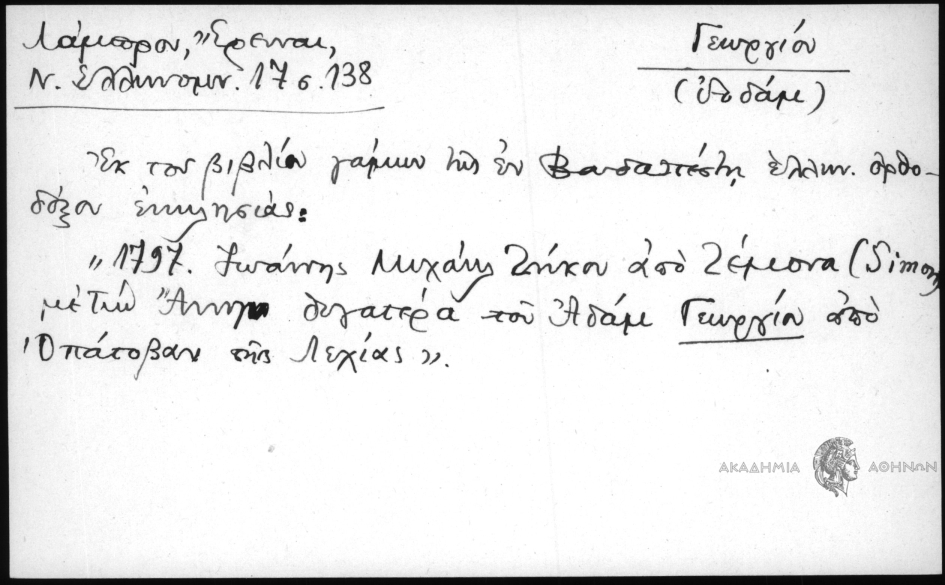 Λάμπρου, "Έρευναι,
Ν. Ἑλληνομν. 17 σ. 138
Γεωργίου
(Ἀδάμ)
Ἐκ του βιβλίου γάμων τῆς ἐν Βουδαπέστῃ ἑλλην. ὀρθο-
δόξου ἐκκλησίας:
"1797. Ἰωάννης Μιχάηλ Ζήκου ἀπὸ Ζέμονα (Simony)
μὲ τὴν Ἄνναν θυγατέρα τοῦ Ἀδάμ Γεωργίου ἀπὸ
Ὀπάτοβαν τῆς Λεχίας".
ΑΚΑΔΗΜΙΑ ΑΘΗΝΩΝ